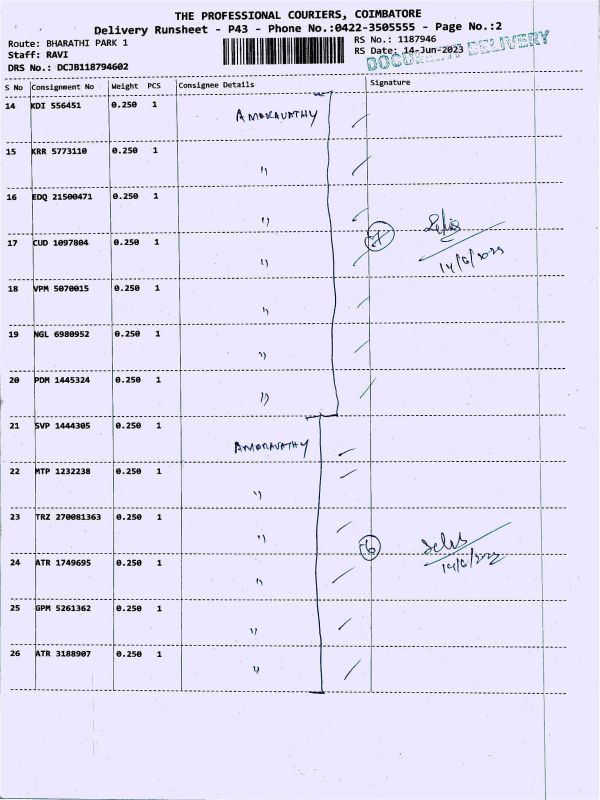 THE PROFESSIONAL COURIERS, COIMBATORE
Delivery Runsheet - P43 - Phone No.:0422-3505555 - Page No.:2
Route: BHARATHI PARK 1
RS No.: 1187946
Staff: RAVI
RS Date: 14-Jun-2023
DOCUMENT DELIVERY
DRS No.: DCJB118794602
S No Consignment No Weight PCS Consignee Details Signature
14 KDI 556451 0.250 1 AMARAVATHY
15 KRR 5773110 0.250 1 "
16 EDQ 21500471 0.250 1 "
17 CUD 1097804 0.250 1 " 7
14/6/2023
18 VPM 5070015 0.250 1 "
19 NGL 6980952 0.250 1 "
20 PDM 1445324 0.250 1 "
21 SVP 1444305 0.250 1 AMARAVATHY
22 MTP 1232238 0.250 1 "
23 TRZ 270081363 0.250 1 " 6
14/6/2023
24 ATR 1749695 0.250 1 "
25 GPM 5261362 0.250 1 "
26 ATR 3188907 0.250 1 "